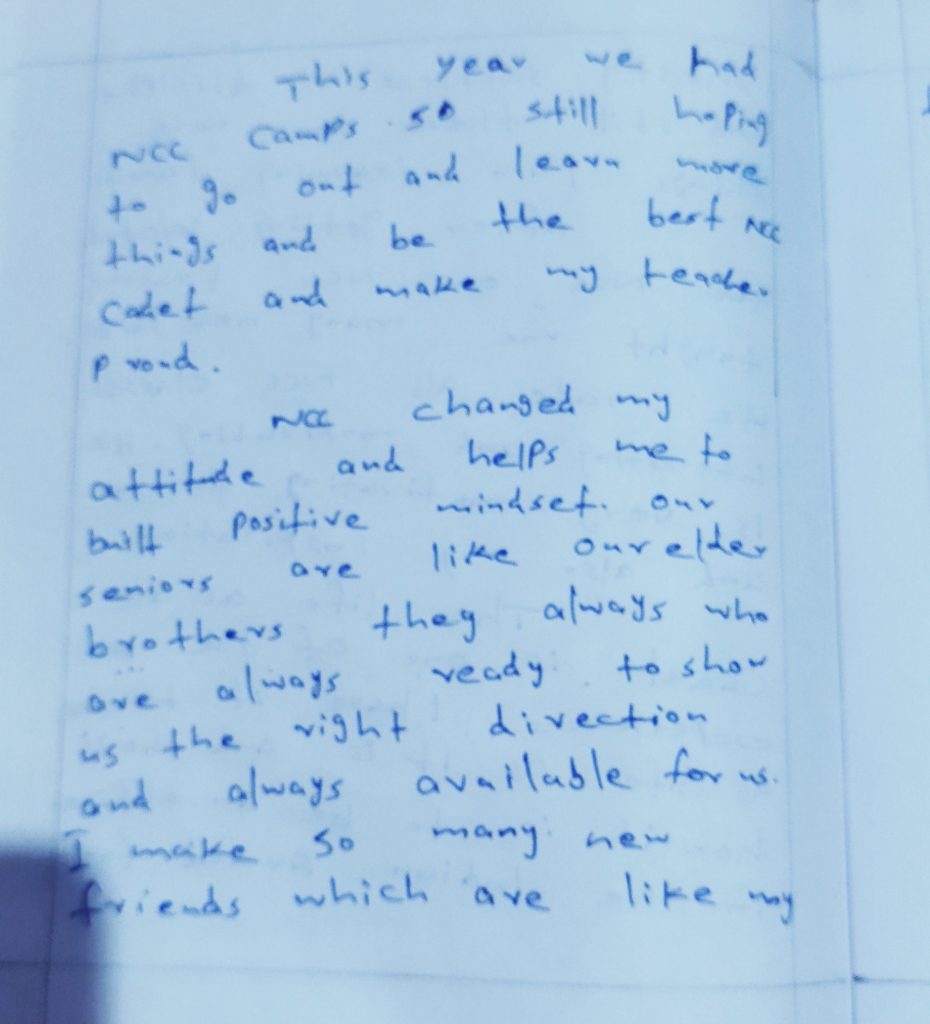 This year we had
NCC camps so still hoping
to go out and learn more
things and be the best NCC
cadet and make my teacher
proud.
NCC changed my
attitude and helps me to
built positive mindset. our
seniors are like our elder
brothers they always who
are always ready to show
us the right direction
and always available for us.
I make so many new
friends which are like my